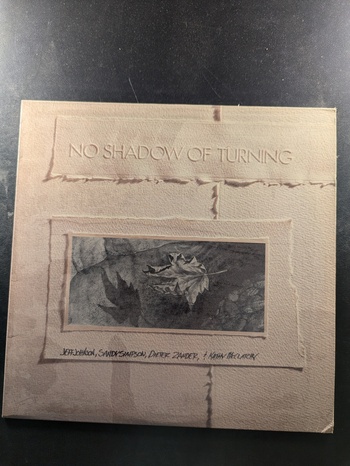 NO SHADOW OF TURNING
JEFF JOHNSON, SANDY SIMPSON, DIETER ZANDER, +